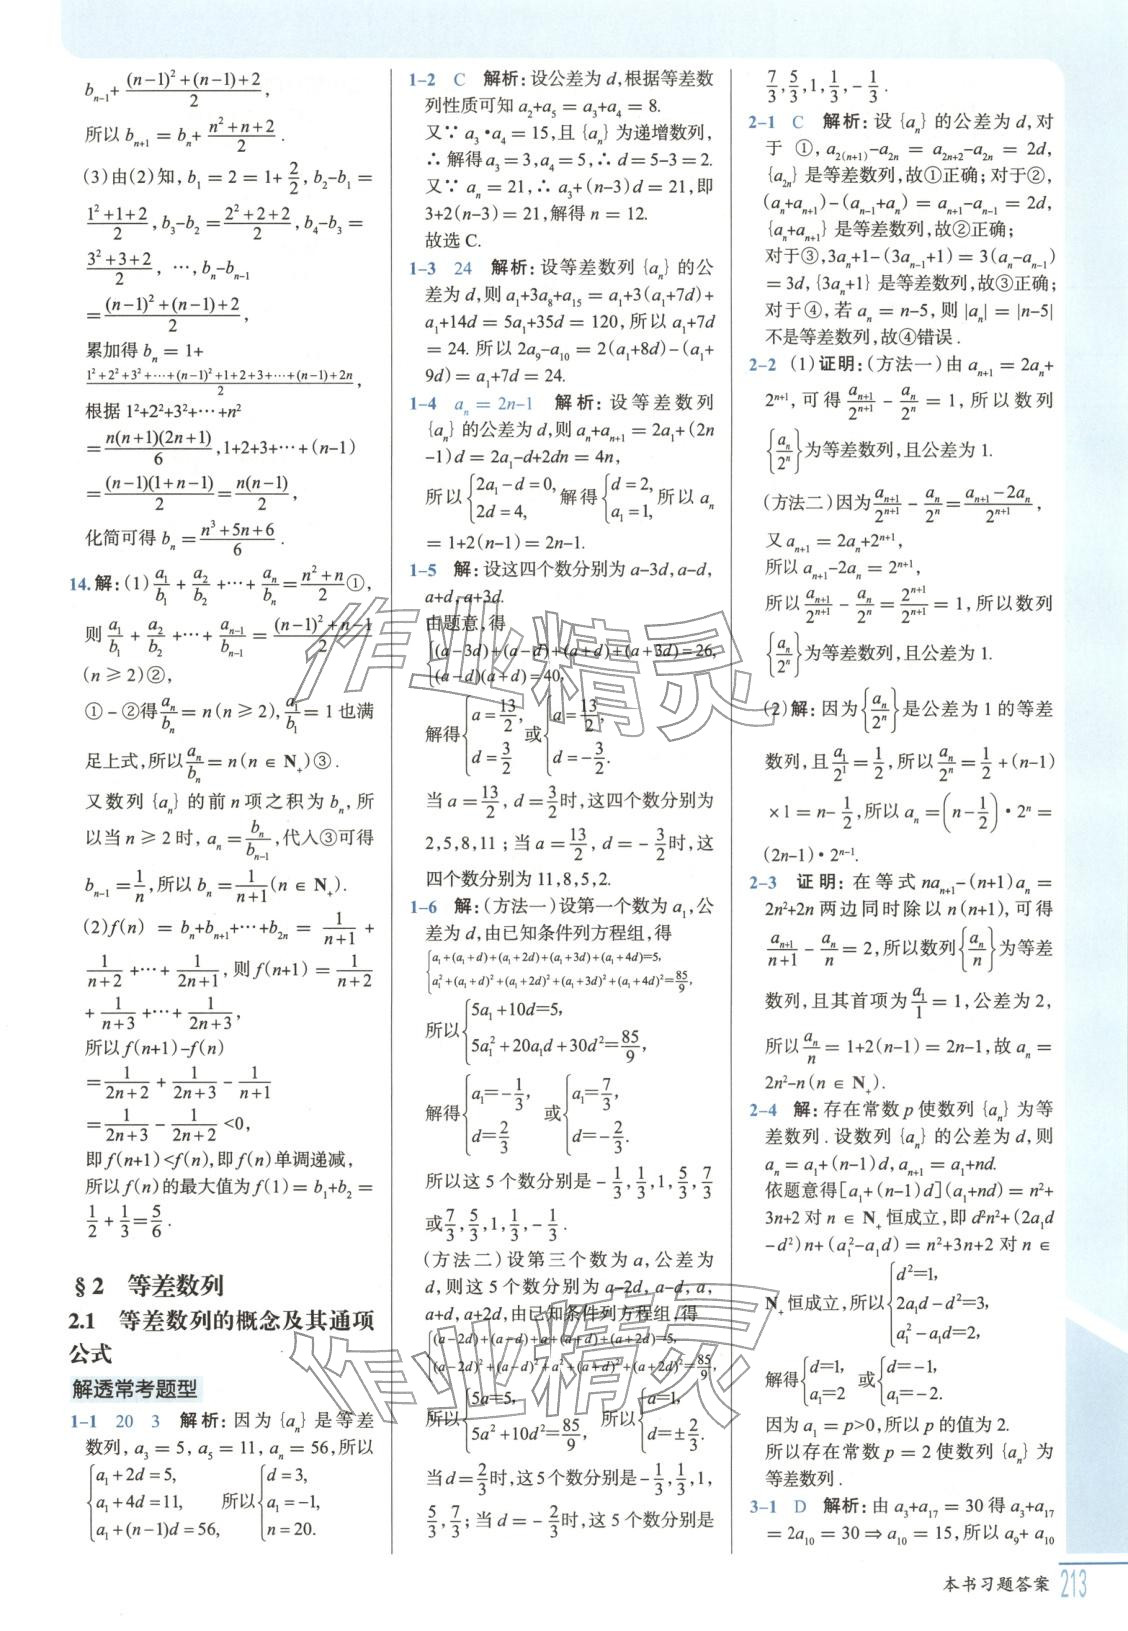 b_{n-1}+\frac{(n-1)^2+(n-1)+2}{2},
所以 b_{n+1}=b_n+\frac{n^2+n+2}{2}.
(3)由(2)知, b_1=2=1+\frac{2}{2}, b_2-b_1=
\frac{1^2+1+2}{2}, b_3-b_2=\frac{2^2+2+2}{2}, b_4-b_3=
\frac{3^2+3+2}{2}, …, b_n-b_{n-1}
=\frac{(n-1)^2+(n-1)+2}{2},
累加得 b_n=1+
\frac{1^2+2^2+3^2+…+(n-1)^2+1+2+3+…+(n-1)+2n}{2},
根据 1^2+2^2+3^2+…+n^2
=\frac{n(n+1)(2n+1)}{6}, 1+2+3+…+(n-1)
=\frac{(n-1)(1+n-1)}{2}=\frac{n(n-1)}{2},
化简可得 b_n=\frac{n^3+5n+6}{6}.
14.解:(1)\frac{a_1}{b_1}+\frac{a_2}{b_2}+…+\frac{a_n}{b_n}=\frac{n^2+n}{2}①,
则\frac{a_1}{b_1}+\frac{a_2}{b_2}+…+\frac{a_{n-1}}{b_{n-1}}=\frac{(n-1)^2+n-1}{2}
(n≥2)②,
①-②得\frac{a_n}{b_n}=n(n≥2),\frac{a_1}{b_1}=1也满
足上式,所以\frac{a_n}{b_n}=n(n∈N_+)③.
又数列{a_n}的前n项之积为b_n,所
以当n≥2时, a_n=\frac{b_n}{b_{n-1}},代入③可得
b_{n-1}=\frac{1}{n},所以 b_n=\frac{1}{n+1}(n∈N_+).
(2)f(n)=b_n+b_{n+1}+…+b_{2n}=\frac{1}{n+1}+
\frac{1}{n+2}+…+\frac{1}{2n+1},则f(n+1)=\frac{1}{n+2}
+\frac{1}{n+3}+…+\frac{1}{2n+3},
所以f(n+1)-f(n)
=\frac{1}{2n+2}+\frac{1}{2n+3}-\frac{1}{n+1}
=\frac{1}{2n+3}-\frac{1}{2n+2}<0,
即f(n+1)<f(n),即f(n)单调递减,
所以f(n)的最大值为f(1)=b_1+b_2=
\frac{1}{2}+\frac{1}{3}=\frac{5}{6}.
§2 等差数列
2.1 等差数列的概念及其通项
公式
解透常考题型
1-1 20 3 解析:因为{a_n}是等差
数列, a_3=5, a_5=11, a_n=56,所以
{a_1+2d=5, {d=3,
{a_1+4d=11, 所以{a_1=-1,
{a_1+(n-1)d=56, {n=20.
1-2 C 解析:设公差为d,根据等差数
列性质可知 a_2+a_5=a_3+a_4=8.
又∵a_3·a_4=15,且{a_n}为递增数列,
∴解得a_3=3,a_4=5,∴d=5-3=2.
又∵a_n=21,∴a_3+(n-3)d=21,即
3+2(n-3)=21,解得n=12.
故选C.
1-3 24 解析:设等差数列{a_n}的公
差为d,则a_1+3a_8+a_{15}=a_1+3(a_1+7d)+
a_1+14d=5a_1+35d=120,所以a_1+7d
=24. 所以 2a_9-a_{10}=2(a_1+8d)-(a_1+
9d)=a_1+7d=24.
1-4 a_n=2n-1 解析:设等差数列
{a_n}的公差为d,则a_n+a_{n+1}=2a_1+(2n
-1)d=2a_1-d+2dn=4n,
所以{2a_1-d=0, 2d=4, 解得{d=2, a_1=1, 所以a_n
=1+2(n-1)=2n-1.
1-5 解:设这四个数分别为a-3d,a-d,
a+d,a+3d.
由题意,得
{(a-3d)+(a-d)+(a+d)+(a+3d)=26,
{(a-d)(a+d)=40,
解得{a=\frac{13}{2}, d=\frac{3}{2} 或{a=\frac{13}{2}, d=-\frac{3}{2}.
当a=\frac{13}{2}, d=\frac{3}{2}时,这四个数分别为
2,5,8,11;当a=\frac{13}{2}, d=-\frac{3}{2}时,这
四个数分别为11,8,5,2.
1-6 解:(方法一)设第一个数为a_1,公
差为d,由已知条件列方程组,得
{a_1+(a_1+d)+(a_1+2d)+(a_1+3d)+(a_1+4d)=5,
{a_1^2+(a_1+d)^2+(a_1+2d)^2+(a_1+3d)^2+(a_1+4d)^2=\frac{85}{9},
所以{5a_1+10d=5, 5a_1^2+20a_1d+30d^2=\frac{85}{9},
解得{a_1=-\frac{1}{3}, d=\frac{2}{3} 或{a_1=\frac{7}{3}, d=-\frac{2}{3}.
所以这5个数分别是-\frac{1}{3},\frac{1}{3},1,\frac{5}{3},\frac{7}{3}
或\frac{7}{3},\frac{5}{3},1,\frac{1}{3},-\frac{1}{3}.
(方法二)设第三个数为a,公差为
d,则这5个数分别为a-2d,a-d,a,
a+d,a+2d,由已知条件列方程组,得
{(a-2d)+(a-d)+a+(a+d)+(a+2d)=5,
{(a-2d)^2+(a-d)^2+a^2+(a+d)^2+(a+2d)^2=\frac{85}{9},
所以{5a=5, 5a^2+10d^2=\frac{85}{9}, 所以{a=1, d=±\frac{2}{3}.
当d=\frac{2}{3}时,这5个数分别是-\frac{1}{3},\frac{1}{3},1,
\frac{5}{3},\frac{7}{3};当d=-\frac{2}{3}时,这5个数分别是
\frac{7}{3},\frac{5}{3},1,\frac{1}{3},-\frac{1}{3}.
2-1 C 解析:设{a_n}的公差为d,对
于①,a_{2(n+1)}-a_{2n}=a_{2n+2}-a_{2n}=2d,
{a_{2n}}是等差数列,故①正确;对于②,
(a_n+a_{n+1})-(a_{n-1}+a_n)=a_{n+1}-a_{n-1}=2d,
{a_n+a_{n+1}}是等差数列,故②正确;
对于③,3a_n+1-(3a_{n-1}+1)=3(a_n-a_{n-1})
=3d,{3a_n+1}是等差数列,故③正确;
对于④,若a_n=n-5,则|a_n|=|n-5|
不是等差数列,故④错误.
2-2 (1)证明:(方法一)由a_{n+1}=2a_n+
2^{n+1},可得\frac{a_{n+1}}{2^{n+1}}-\frac{a_n}{2^n}=1,所以数列
{\frac{a_n}{2^n}}为等差数列,且公差为1.
(方法二)因为\frac{a_{n+1}}{2^{n+1}}-\frac{a_n}{2^n}=\frac{a_{n+1}-2a_n}{2^{n+1}},
又a_{n+1}=2a_n+2^{n+1},
所以a_{n+1}-2a_n=2^{n+1},
所以\frac{a_{n+1}}{2^{n+1}}-\frac{a_n}{2^n}=\frac{2^{n+1}}{2^{n+1}}=1,所以数列
{\frac{a_n}{2^n}}为等差数列,且公差为1.
(2)解:因为{\frac{a_n}{2^n}}是公差为1的等差
数列,且\frac{a_1}{2^1}=\frac{1}{2},所以\frac{a_n}{2^n}=\frac{1}{2}+(n-1)
×1=n-\frac{1}{2},所以a_n=(n-\frac{1}{2})·2^n=
(2n-1)·2^{n-1}.
2-3 证明:在等式na_{n+1}-(n+1)a_n=
2n^2+2n两边同时除以n(n+1),可得
\frac{a_{n+1}}{n+1}-\frac{a_n}{n}=2,所以数列{\frac{a_n}{n}}为等差
数列,且其首项为\frac{a_1}{1}=1,公差为2,
所以\frac{a_n}{n}=1+2(n-1)=2n-1,故a_n=
2n^2-n(n∈N_+).
2-4 解:存在常数p使数列{a_n}为等
差数列.设数列{a_n}的公差为d,则
a_n=a_1+(n-1)d,a_{n+1}=a_1+nd.
依题意得[a_1+(n-1)d](a_1+nd)=n^2+
3n+2对n∈N_+恒成立,即d^2n^2+(2a_1d
-d^2)n+(a_1^2-a_1d)=n^2+3n+2对n∈
N_+恒成立,所以{d^2=1, 2a_1d-d^2=3, a_1^2-a_1d=2.
解得{d=1, a_1=2 或{d=-1, a_1=-2.
因为a_1=p>0,所以p的值为2.
所以存在常数p=2使数列{a_n}为
等差数列.
3-1 D 解析:由a_3+a_{17}=30得a_3+a_{17}
=2a_{10}=30⇒a_{10}=15,所以a_9+a_{10}
本书习题答案 213
作业精灵
作业精灵